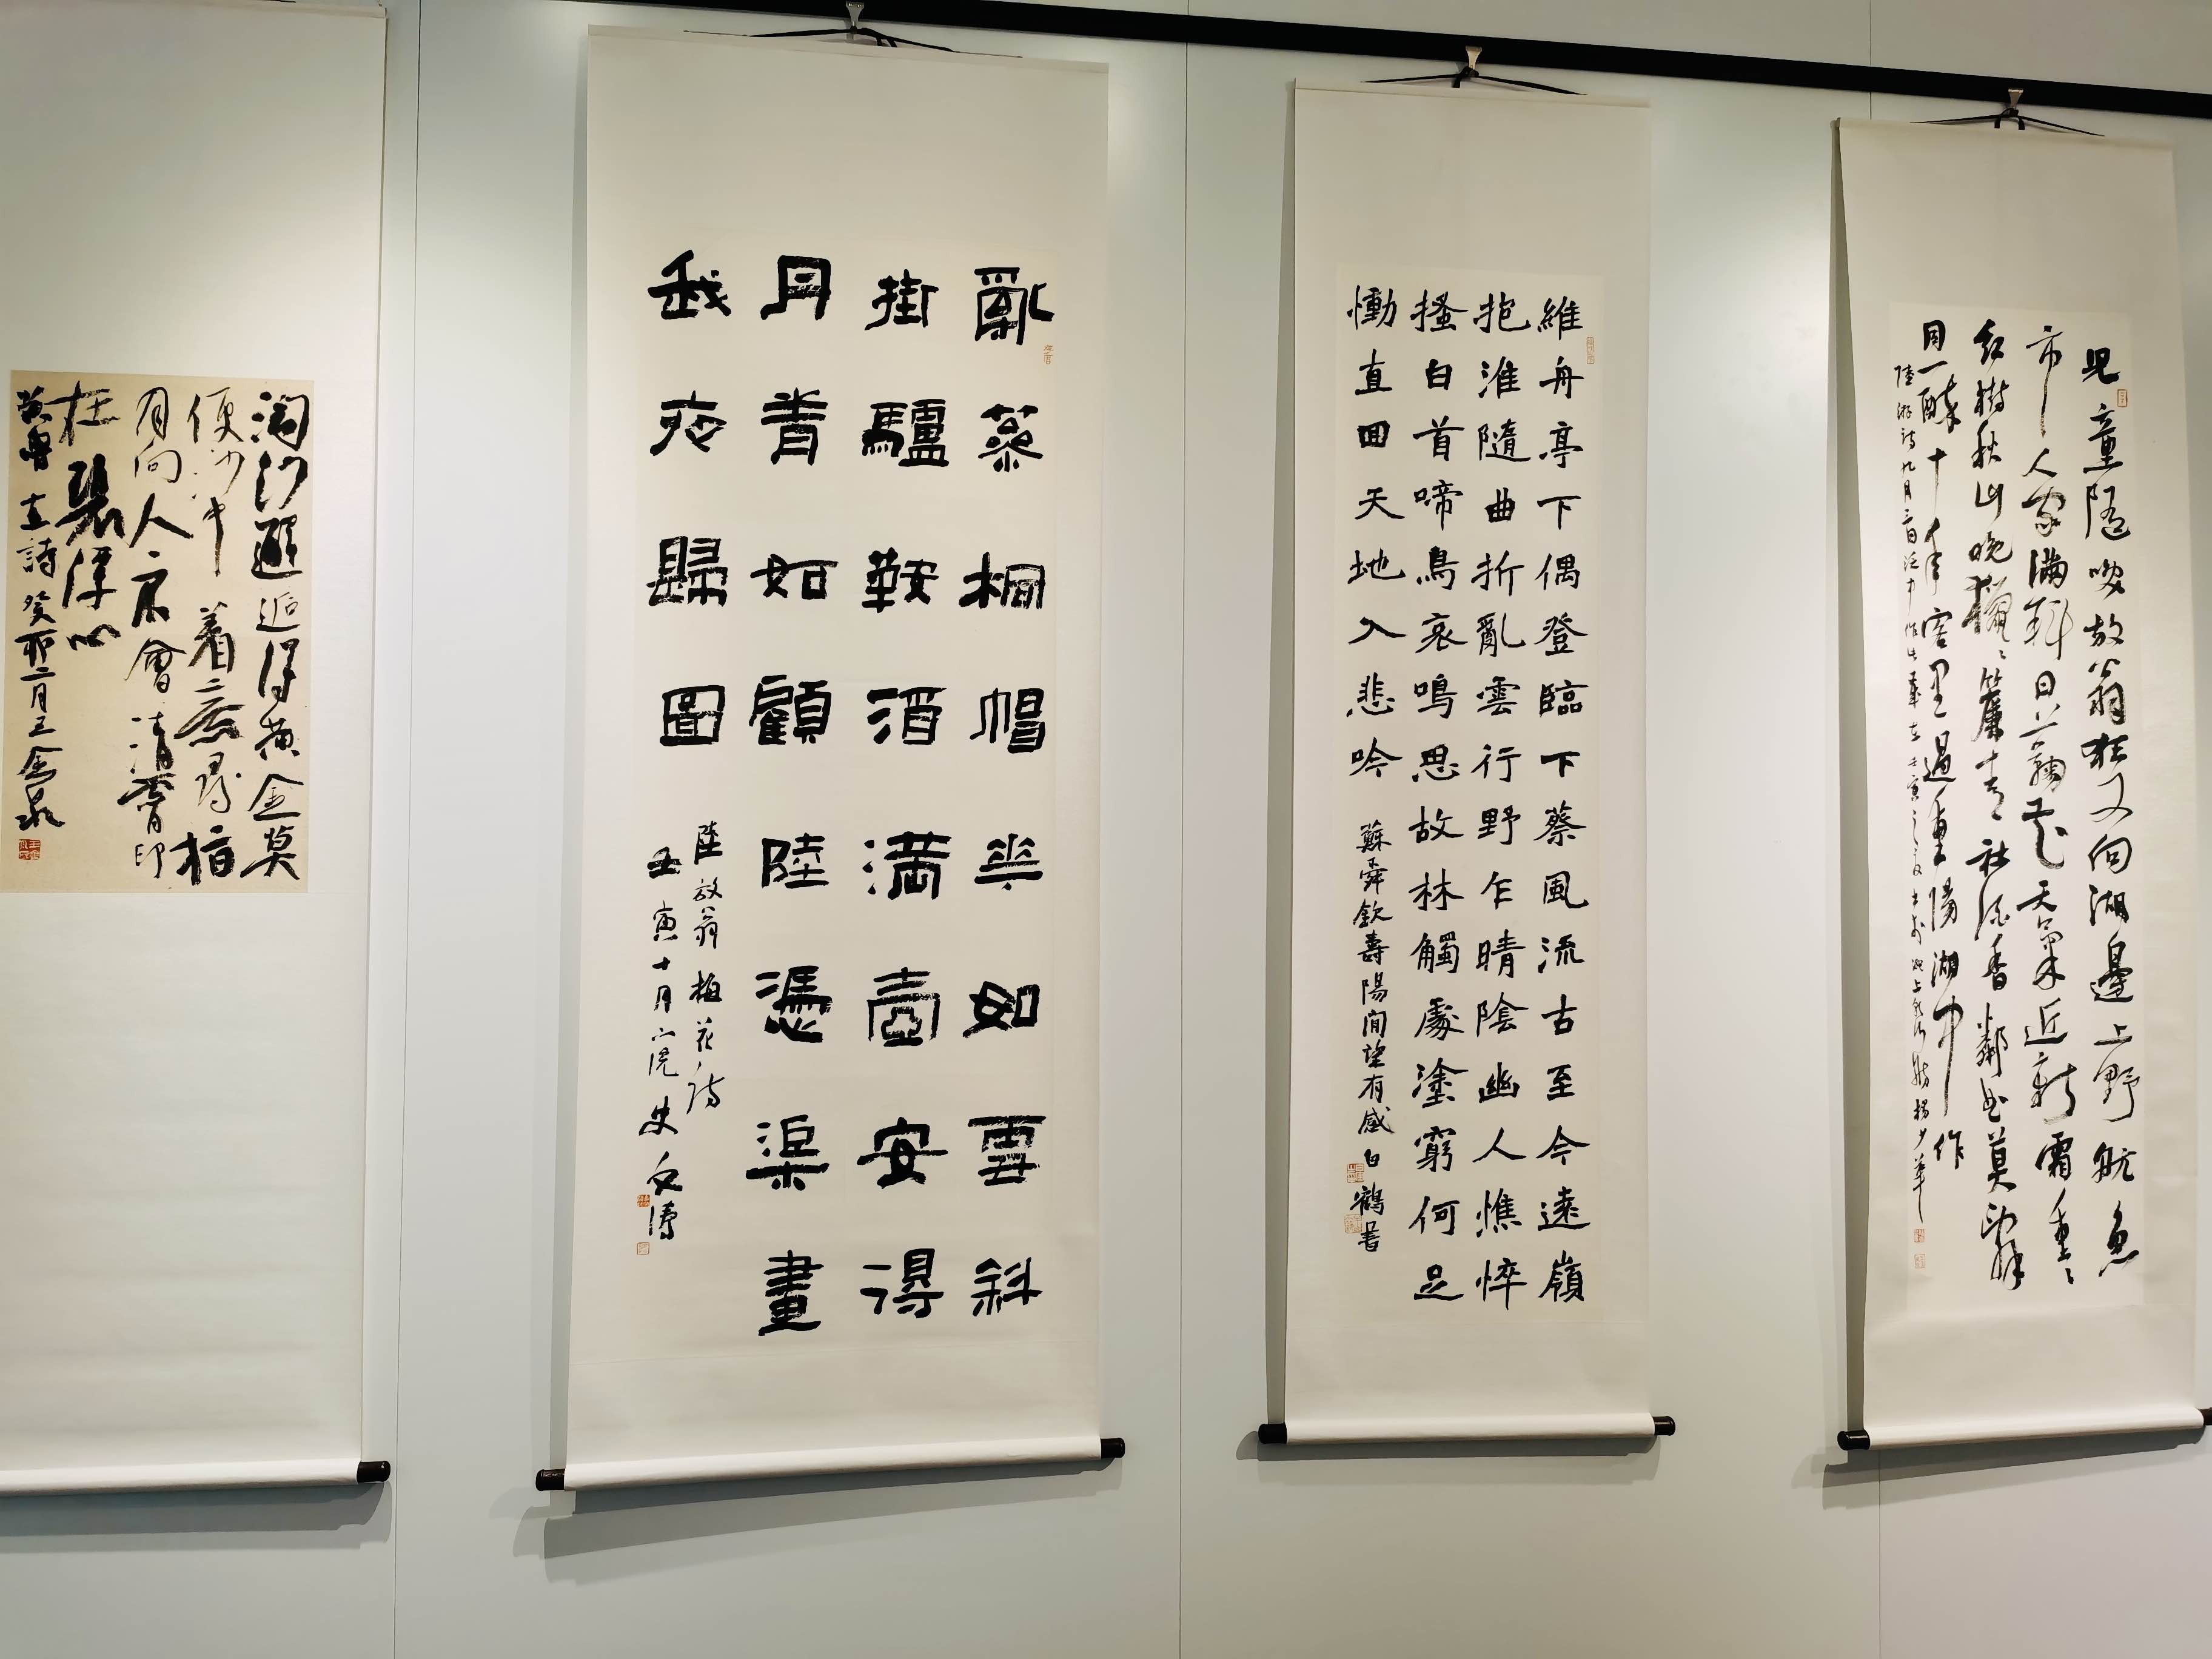 兒童隨笑放翁狂又向湖邊上野航魚
市人家滿斜日菊花天氣近新霜重〻
紅樹秋山晚獵〻簾青〻社酒香鄰曲莫辭
同一醉十年客里過重陽湖中作
陸游詩九月三日泛舟湖中作
維舟亭下偶登臨下蔡風流古至今遠嶺
抱淮隨曲折亂雲行野乍晴陰幽人憔悴
搔白首啼鳥哀鳴思故林觸處塗窮何足
慟直回天地入悲吟
蘇舜欽壽陽閒望有感白鶴書
亂簪桐帽華如雪斜
掛驢鞍酒滿壺安得
丹青如顧陸憑渠畫
我夜歸圖
陸放翁梅花詩
壬寅十月六浣史文濤
淘沙邂逅得黃金莫
便沙中着意尋指
月向人〻不會清霄印
在碧潭心
黃魯直詩癸卯二月王金泉